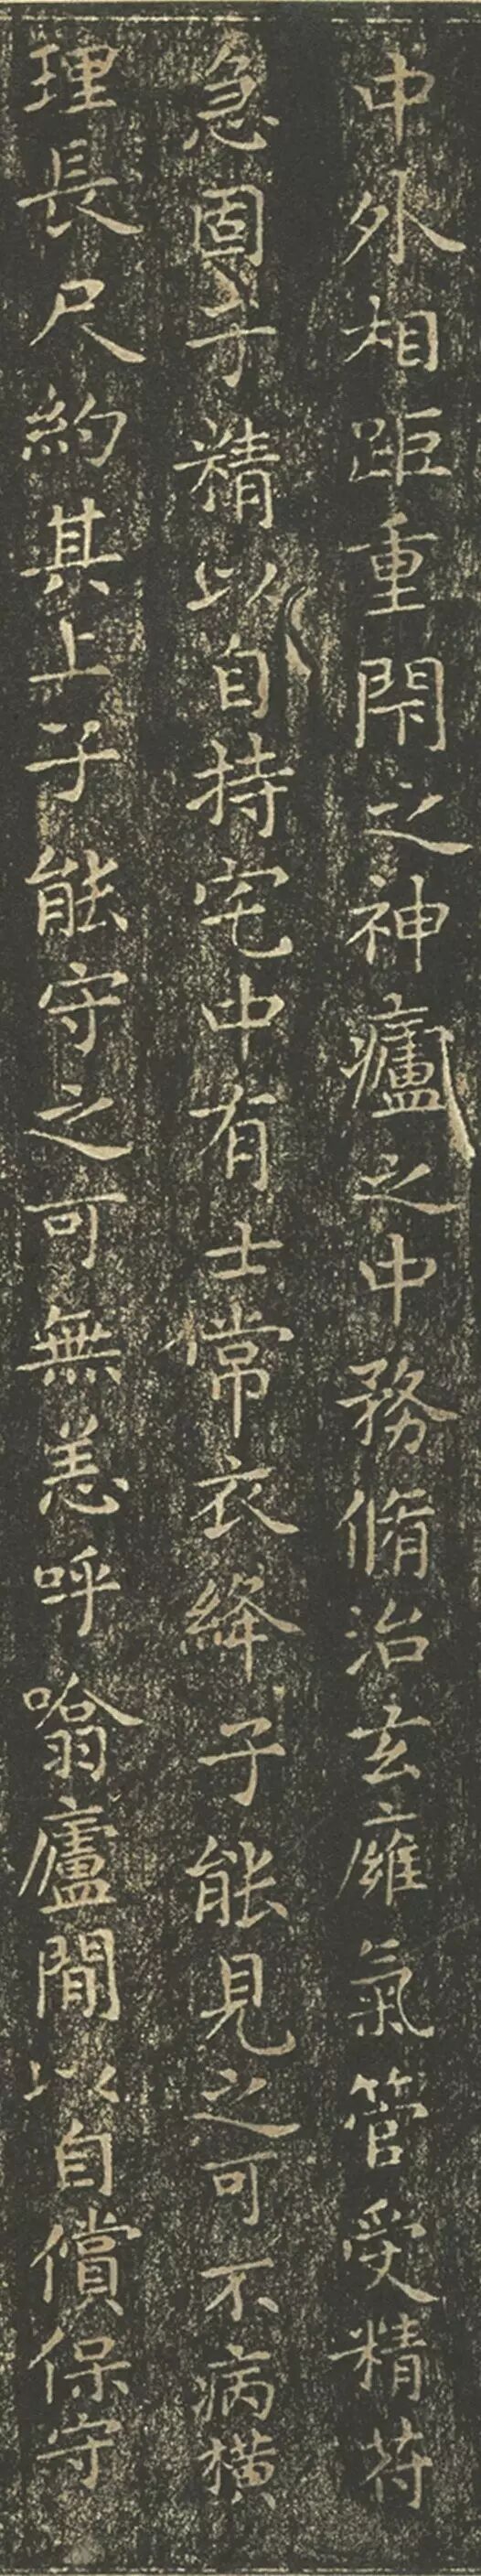 中外相距重閇之神廬之中務脩治玄廱氣管受精苻
急固子精以自持宅中有士常衣絳子能見之可不病橫
理長尺約其上子能守之可無恙呼噏廬閒以自償保守